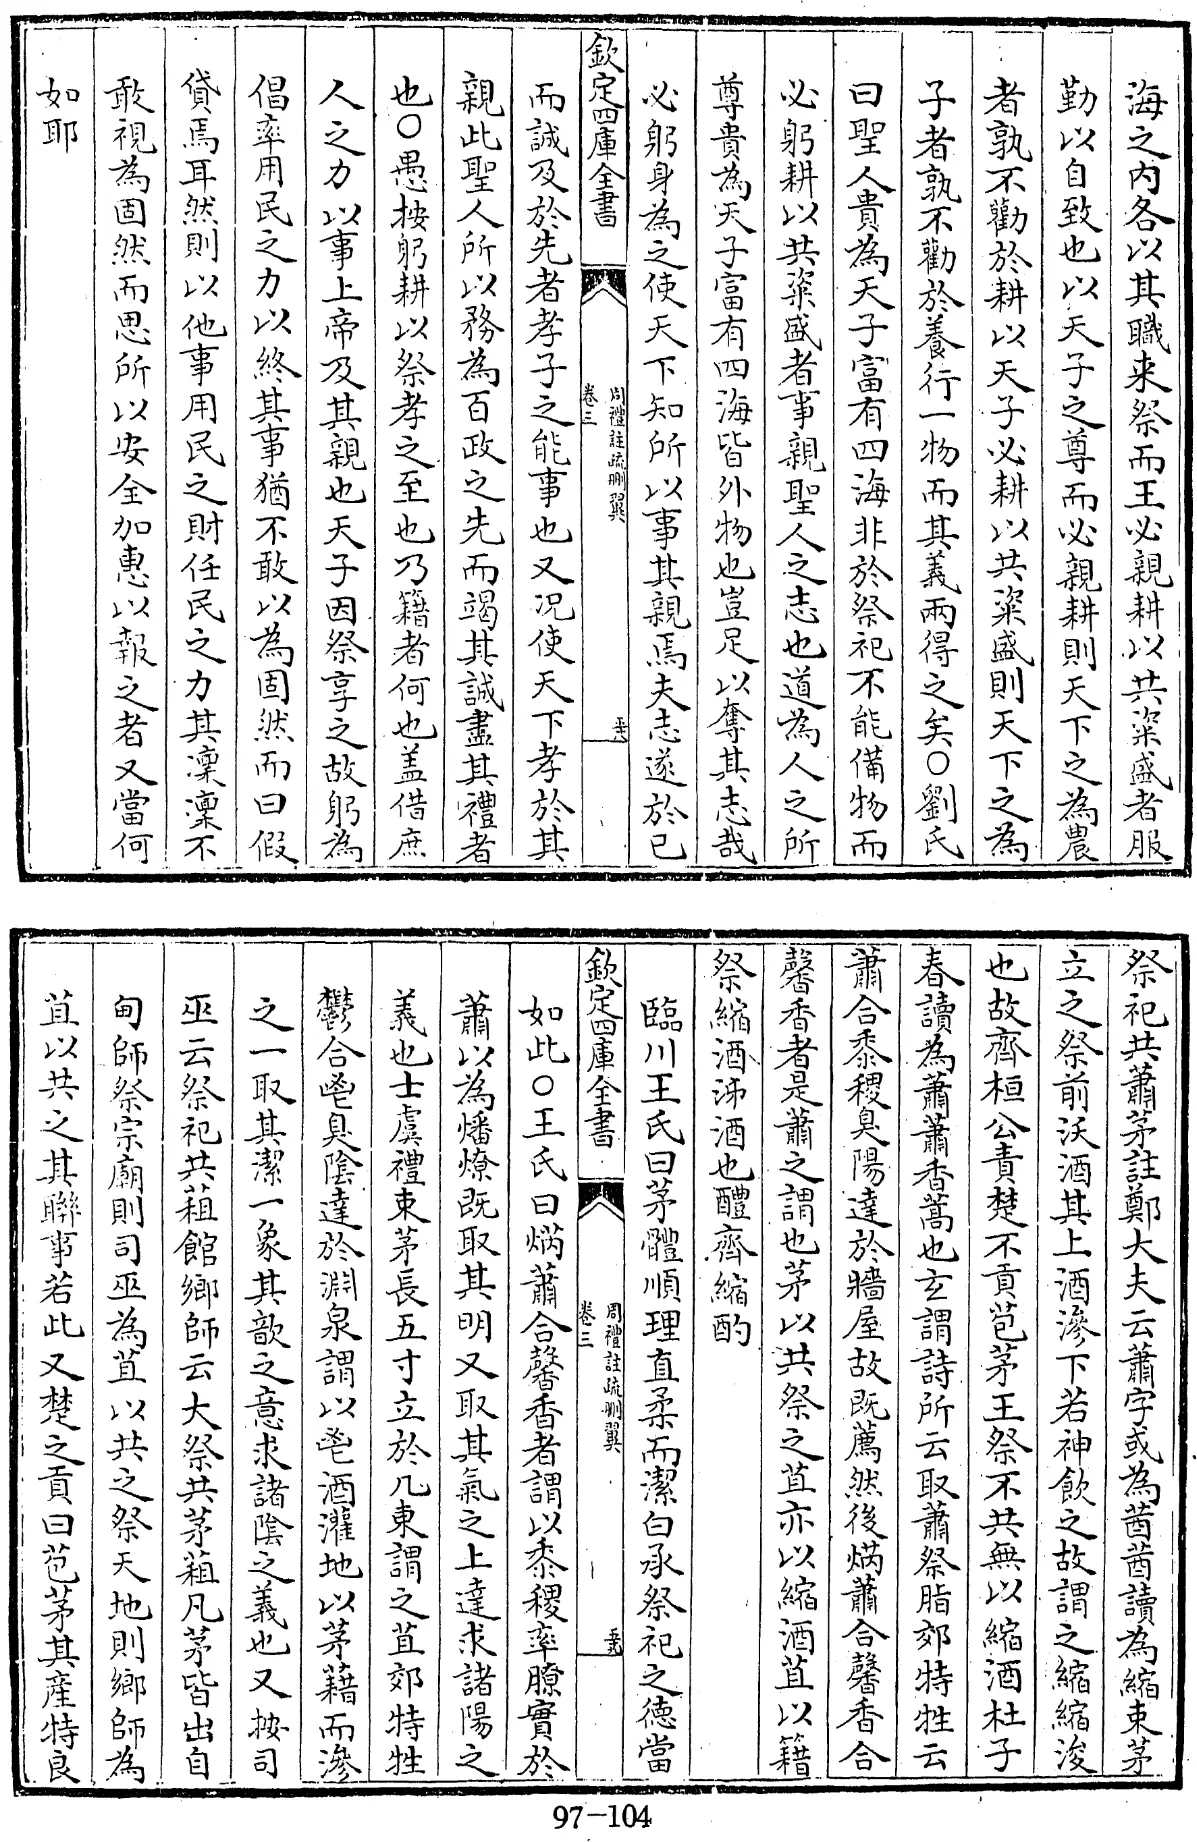 海之内各以其職来祭而王必親耕以共粢盛者服
勤以自致也以天子之尊而必親耕則天下之為農
者孰不勸於耕以天子必耕以共粢盛則天下之為
子者孰不勸於養行一物而其義兩得之矣○劉氏
曰聖人貴為天子富有四海非於祭祀不能備物而
必躬耕以共粢盛者事親聖人之志也道為人之所
尊貴為天子富有四海皆外物也豈足以奪其志哉
必躬身為之使天下知所以事其親焉夫志遂於已
欽定四庫全書
周禮註疏刪翼
卷三
而誠及於先者孝子之能事也又况使天下孝於其
親此聖人所以務為百政之先而竭其誠盡其禮者
也○愚按躬耕以祭孝之至也乃籍者何也盖借庶
人之力以事上帝及其親也天子因祭享之故躬為
倡率用民之力以終其事猶不敢以為固然而曰假
貸焉耳然則以他事用民之財任民之力其凜凜不
敢視為固然而思所以安全加惠以報之者又當何
如耶
祭祀共蕭茅註鄭大夫云蕭字或為莤莤讀為縮束茅
立之祭前沃酒其上酒滲下若神飲之故謂之縮縮浚
也故齊桓公責楚不貢苞茅王祭不共無以縮酒杜子
春讀為蕭蕭香蒿也玄謂詩所云取蕭祭脂郊特牲云
蕭合黍稷臭陽達於牆屋故既薦然後焫蕭合馨香合
馨香者是蕭之謂也茅以共祭之苴亦以縮酒苴以籍
祭縮酒泲酒也醴齊縮酌
臨川王氏曰茅體順理直柔而潔白承祭祀之德當
欽定四庫全書
周禮註疏刪翼
卷三
如此○王氏曰焫蕭合馨香者謂以黍稷率膫實於
蕭以為燔燎既取其明又取其氣之上達求諸陽之
義也士虞禮束茅長五寸立於几東謂之苴郊特牲
鬱合鬯臭陰達於淵泉謂以鬯酒灌地以茅藉而滲
之一取其潔一象其歆之意求諸陰之義也又按司
巫云祭祀共蒩館鄉師云大祭共茅蒩凡茅皆出自
甸師祭宗廟則司巫為苴以共之祭天地則鄉師為
苴以共之其聯事若此又楚之貢曰苞茅其產特良
97-104